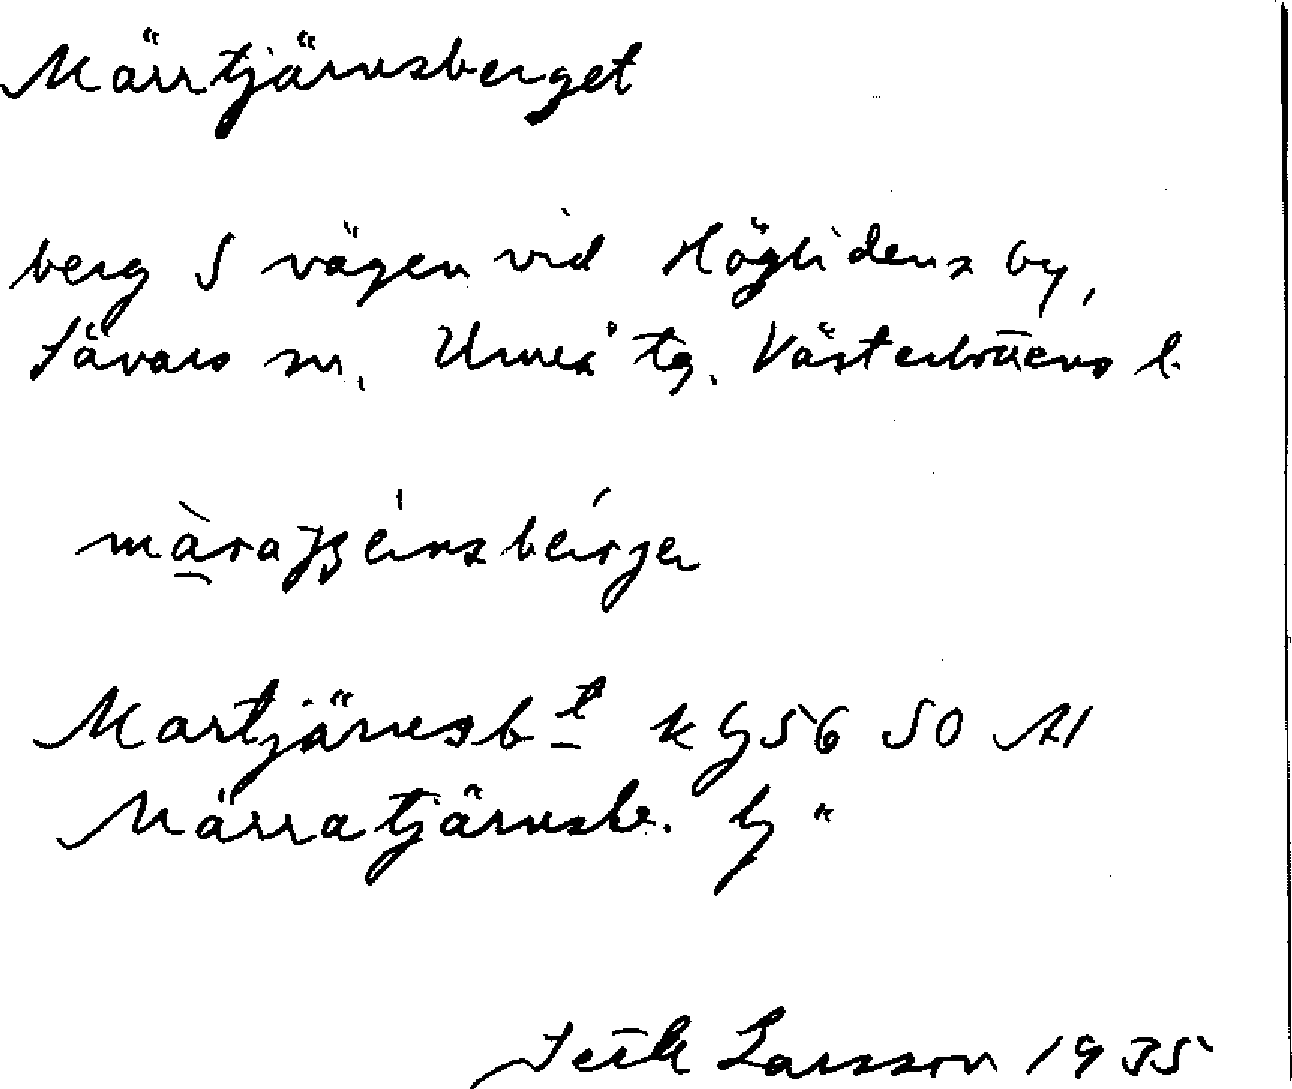 Märrtjärnsberget
berg S vägen vid Höglidens by,
Sävars sn. Umeå tg. Västerbottens l.
Martjärnsbt k G 56 SO
Märratjärnsb. G "
Larsson 1935